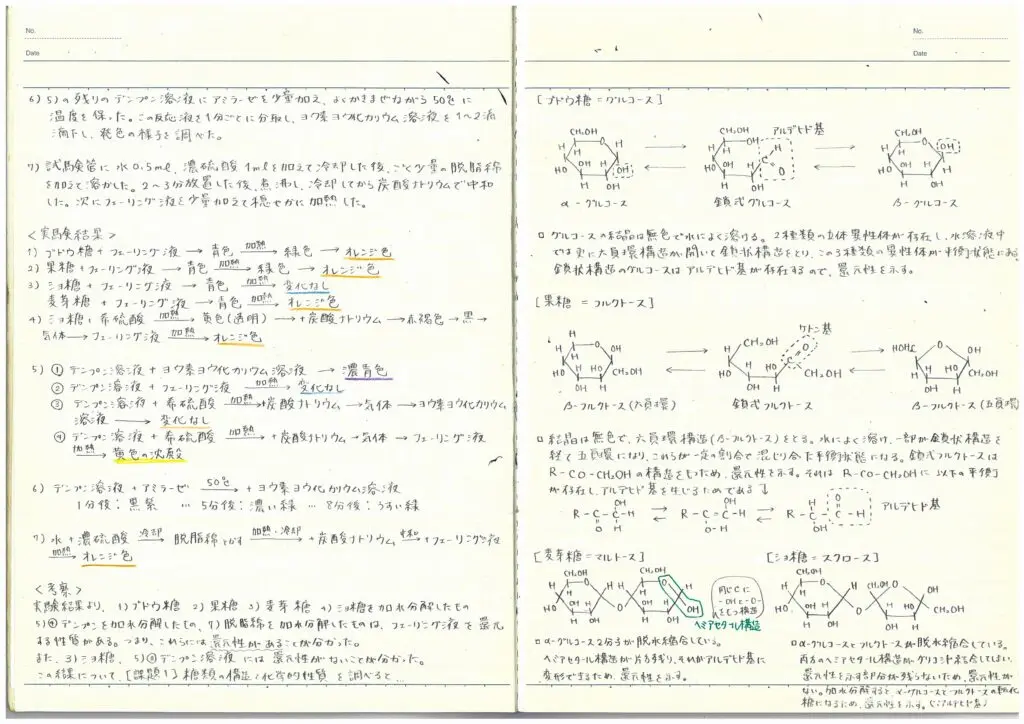 No.
Date
6) 5)の残りのデンプン溶液にアミラーゼを少量加え、よくかきまぜながら50℃に
温度を保った。この反応液を1分ごとに分取し、ヨウ素ヨウ化カリウム溶液を1~2滴
滴下し、発色の様子を調べた。
7) 試験管に水0.5ml、濃硫酸1mlを加えて冷却した後、ごく少量の脱脂綿
を加えて溶かした。2~3分放置した後、煮沸し、冷却してから炭酸ナトリウムで中和
した。次にフェーリング液を少量加えて穏やかに加熱した。
<実験結果>
1) ブドウ糖+フェーリング液 → 青色 加熱→ 緑色 → オレンジ色
2) 果糖+フェーリング液 → 青色 加熱→ 緑色 → オレンジ色
3) ショ糖+フェーリング液 → 青色 加熱→ 変化なし
麦芽糖+フェーリング液 → 青色 加熱→ オレンジ色
4) ショ糖+希硫酸 加熱→ 黄色(透明) → +炭酸ナトリウム → 赤褐色 → 黒 →
気体 → フェーリング液 加熱→ オレンジ色
5) ① デンプン溶液+ヨウ素ヨウ化カリウム溶液 → 濃青色
② デンプン溶液+フェーリング液 加熱→ 変化なし
③ デンプン溶液+希硫酸 加熱→ +炭酸ナトリウム → 気体 → ヨウ素ヨウ化カリウム
溶液 → 変化なし
④ デンプン溶液+希硫酸 加熱→ +炭酸ナトリウム → 気体 → フェーリング液
加熱→ 黄色の沈殿
6) デンプン溶液+アミラーゼ 50℃→ +ヨウ素ヨウ化カリウム溶液
1分後:黒紫 … 5分後:濃い緑 … 8分後:うすい緑
7) 水+濃硫酸 冷却→ 脱脂綿とかす 加熱・冷却→ +炭酸ナトリウム 中和→ +フェーリング液
加熱→ オレンジ色
<考察>
実験結果より、1)ブドウ糖 2)果糖 3)麦芽糖 4)ショ糖を加水分解したもの
5)④デンプンを加水分解したもの、7)脱脂綿を加水分解したものは、フェーリング液を還元
する性質がある。つまり、これらには還元性があることが分かった。
また、3)ショ糖、5)②デンプン溶液には還元性がないことが分かった。
この結果について、[課題1]糖類の構造と化学的性質を調べると…
No.
Date
[ブドウ糖=グルコース]
CH₂OH CH₂OH アルデヒド基 CH₂OH
α-グルコース 鎖式グルコース β-グルコース
□ グルコースの結晶は無色で水によく溶ける。2種類の立体異性体が存在し、水溶液中
では更に六員環構造が開いて鎖状構造をとり、この3種類の異性体が平衡状態にある。
鎖状構造のグルコースはアルデヒド基が存在するので、還元性を示す。
[果糖=フルクトース]
ケトン基
CH₂OH CH₂OH CH₂OH HOH₂C CH₂OH
β-フルクトース(六員環) 鎖式フルクトース β-フルクトース(五員環)
□ 結晶は無色で、六員環構造(β-フルクトース)をとる。水によく溶け、一部が鎖状構造を
経て五員環になり、これらが一定の割合で混じり合った平衡状態になる。鎖式フルクトースは
R-CO-CH₂OHの構造をもつため、還元性を示す。それはR-CO-CH₂OHに以下の平衡
が存在し、アルデヒド基を生じるためである↓
アルデヒド基
[麦芽糖=マルトース] [ショ糖=スクロース]
CH₂OH CH₂OH CH₂OH
同じCに
-OHと-O-
をもつ構造
ヘミアセタール構造
□ α-グルコース2分子が脱水縮合している。
ヘミアセタール構造が片方残り、それがアルデヒド基に
変形できるため、還元性を示す。
□ α-グルコースとフルクトースが脱水縮合している。
両方のヘミアセタール構造がグリコシド結合してしまい、
還元性を示す部分が残らないため、還元性が
ない。加水分解すると、α-グルコースとフルクトースの転化
糖になるため、還元性を示す。(∵アルデヒド基)